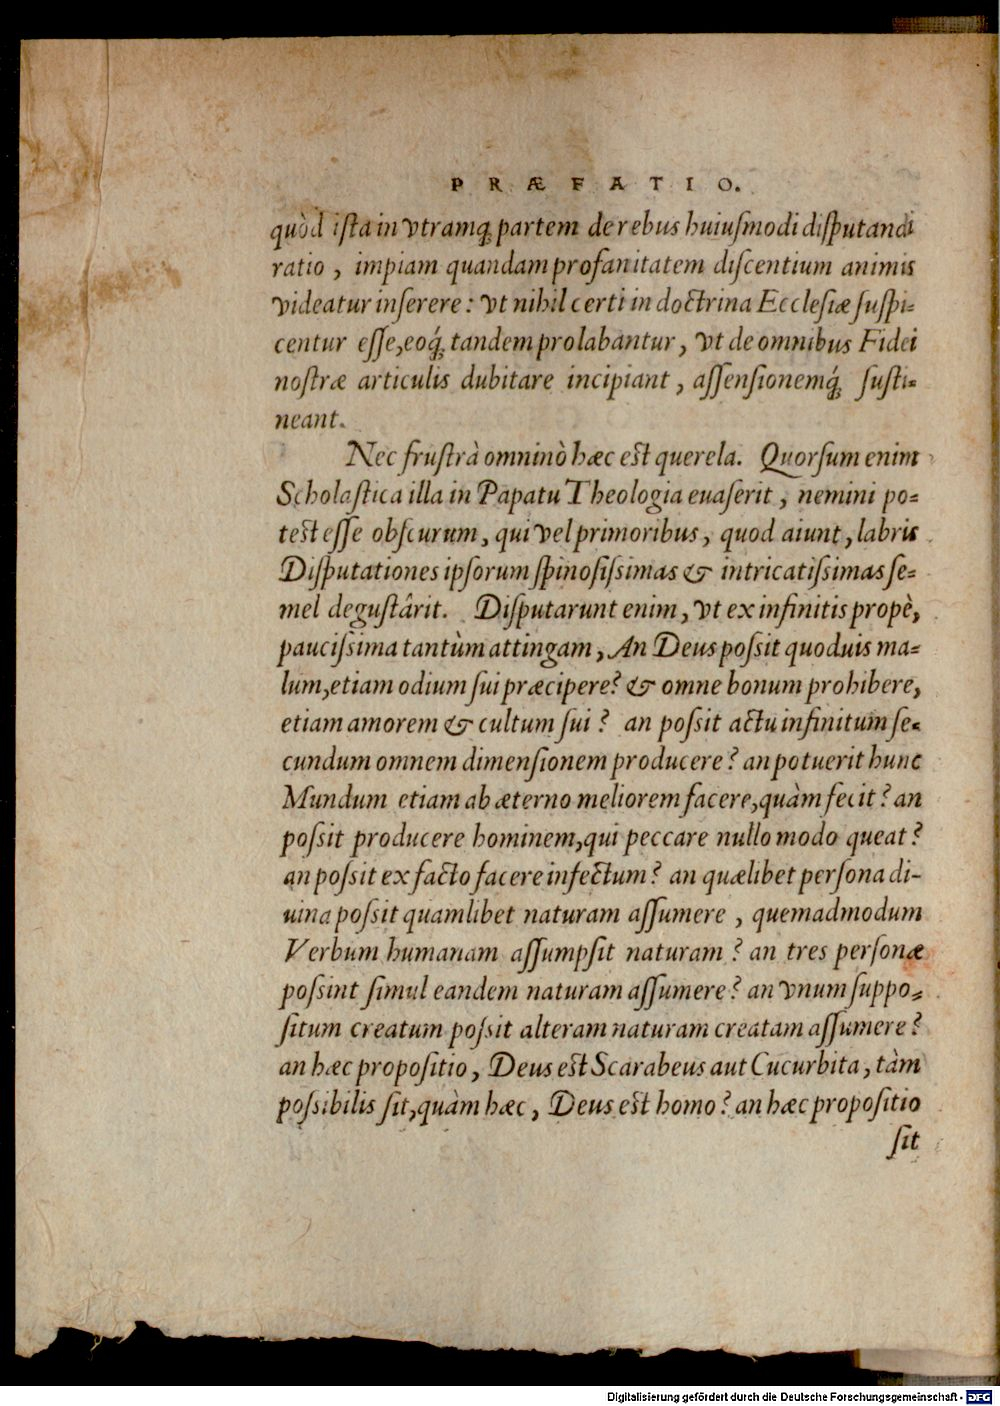 PRÆFATIO.
quòd ista in vtramq́; partem de rebus huiusmodi disputandi
ratio, impiam quandam profanitatem discentium animis
videatur inserere: vt nihil certi in doctrina Ecclesiæ suspi-
centur esse, eoq́; tandem prolabantur, vt de omnibus Fidei
nostræ articulis dubitare incipiant, assensionemq́; susti-
neant.
Nec frustrà omninò hæc est querela. Quorsum enim
Scholastica illa in Papatu Theologia euaserit, nemini po-
test esse obscurum, qui vel primoribus, quod aiunt, labris
Disputationes ipsorum spinosissimas & intricatissimas se-
mel degustârit. Disputarunt enim, vt ex infinitis propè,
paucissima tantùm attingam, An Deus possit quoduis ma-
lum, etiam odium sui præcipere? & omne bonum prohibere,
etiam amorem & cultum sui? an possit actu infinitum se-
cundum omnem dimensionem producere? an potuerit hunc
Mundum etiam ab æterno meliorem facere, quàm fecit? an
possit producere hominem, qui peccare nullo modo queat?
an possit ex facto facere infectum? an quælibet persona di-
uina possit quamlibet naturam assumere, quemadmodum
Verbum humanam assumpsit naturam? an tres personæ
possint simul eandem naturam assumere? an vnum suppo-
situm creatum possit alteram naturam creatam assumere?
an hæc propositio, Deus est Scarabeus aut Cucurbita, tàm
possibilis sit, quàm hæc, Deus est homo? an hæc propositio
sit
Digitalisierung gefördert durch die Deutsche Forschungsgemeinschaft - DFG